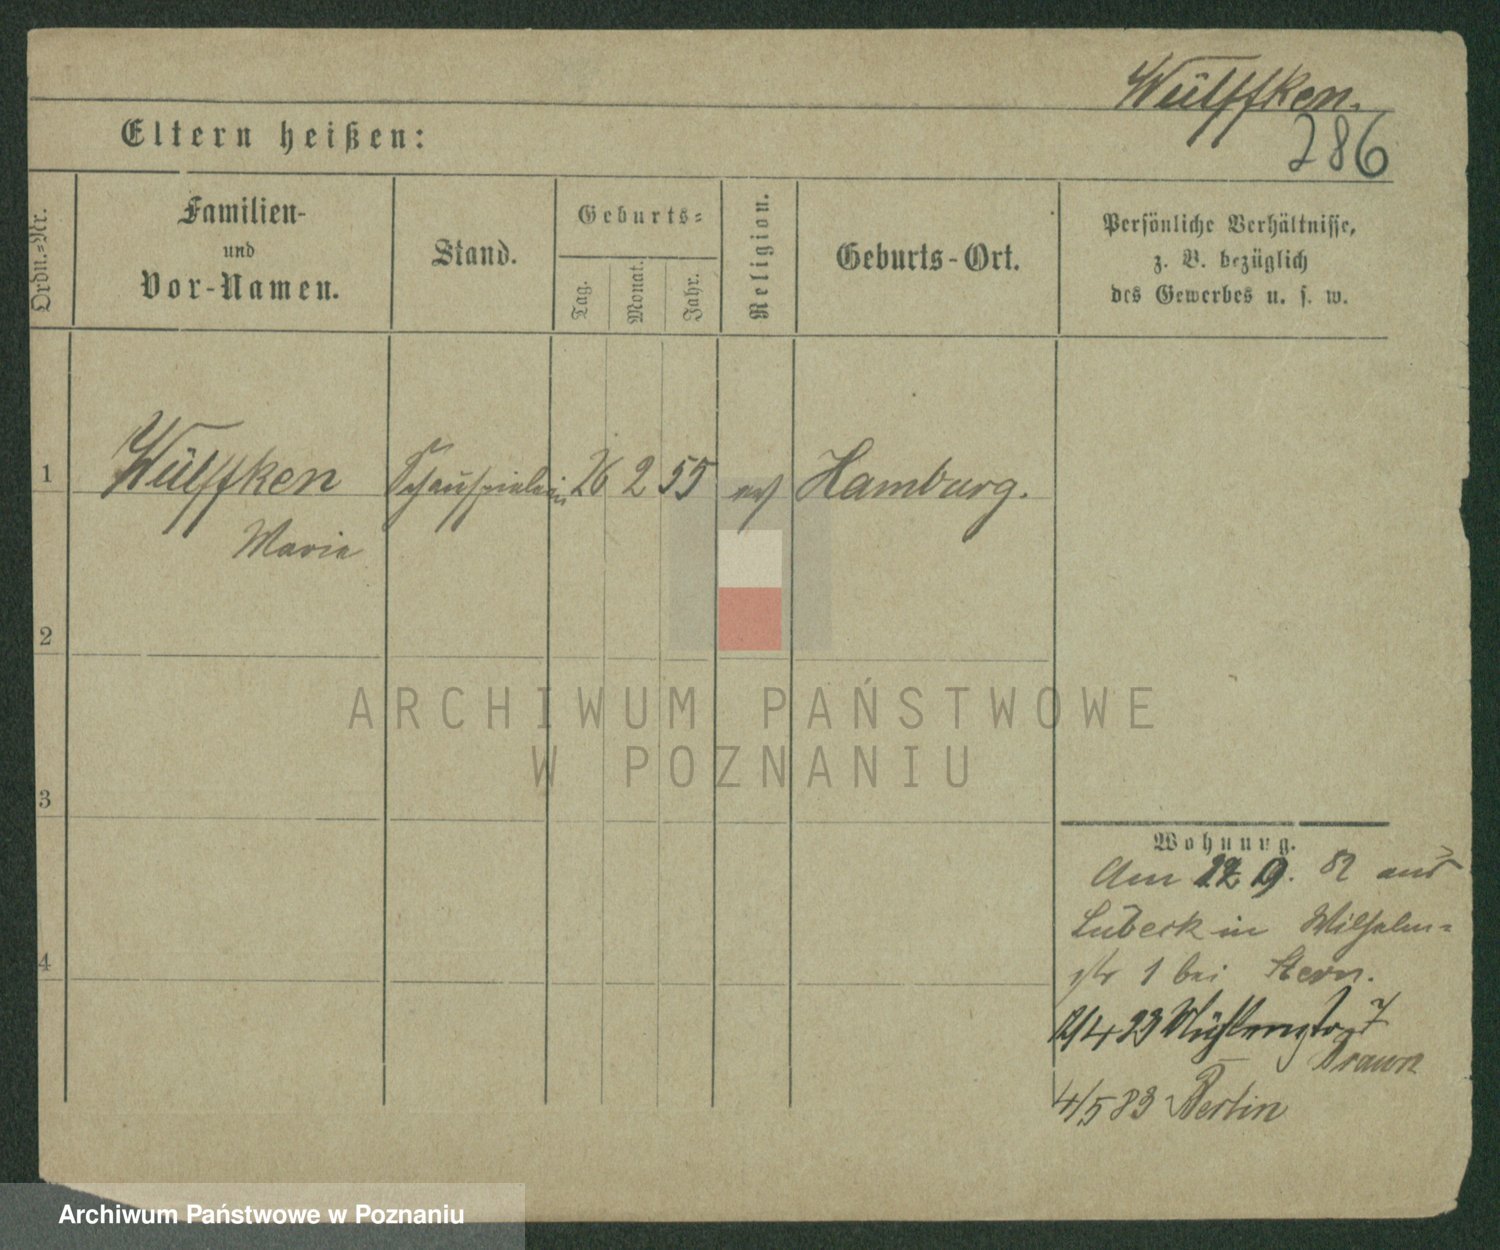 Wülffken.
286
Eltern heißen:
Ordn.=Nr.
Familien-
und
Vor-Namen.
Stand.
Geburts=
Tag.
Monat.
Jahr.
Religion.
Geburts-Ort.
Persönliche Verhältnisse,
z. B. bezüglich
des Gewerbes u. s. w.
1
Wülffken Schauspielerin 26 2 55 ev Hamburg.
Maria
2
ARCHIWUM PAŃSTWOWE
W POZNANIU
3
Wohnung.
Am 9. 82 aus
Lübeck in Wilhelm=
str 1 bei Stern.
4
4 83 Mühlenstr 7
Braun
4/5 83 Berlin
Archiwum Państwowe w Poznaniu